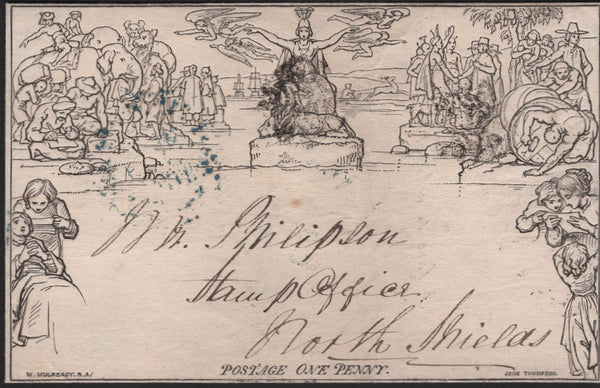 Wm. Philipson
Stamp Office
North Shields
POSTAGE ONE PENNY.
W. MULREADY. R.A.
JOHN THOMPSON.